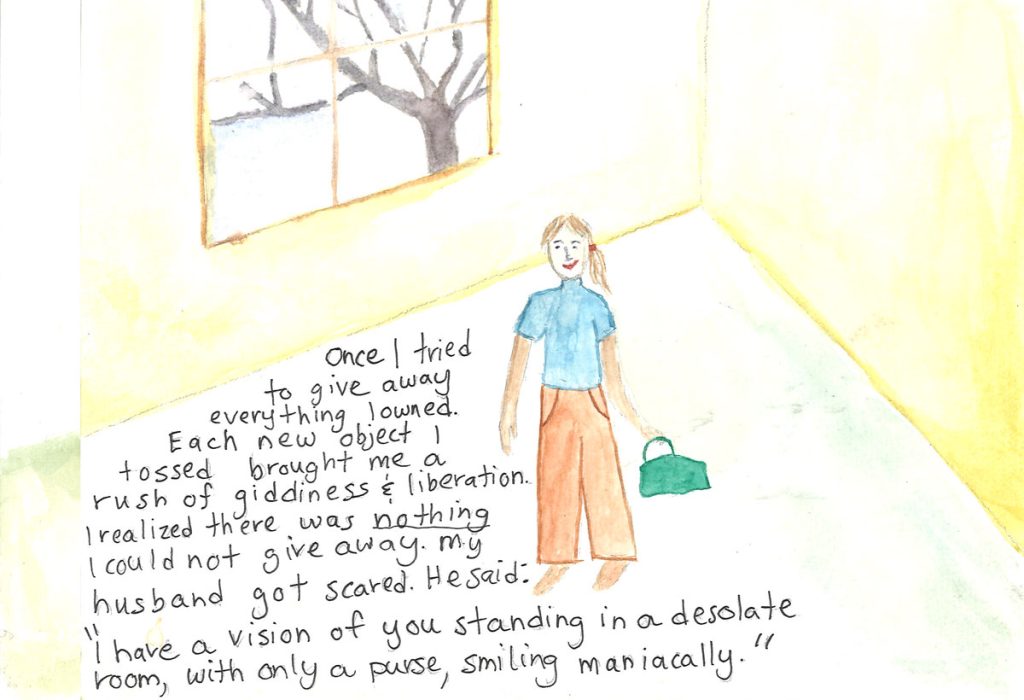 Once I tried
to give away
everything I owned.
Each new object I
tossed brought me a
rush of giddiness & liberation.
I realized there was nothing
I could not give away. My
husband got scared. He said:
"I have a vision of you standing in a desolate
room, with only a purse, smiling maniacally."